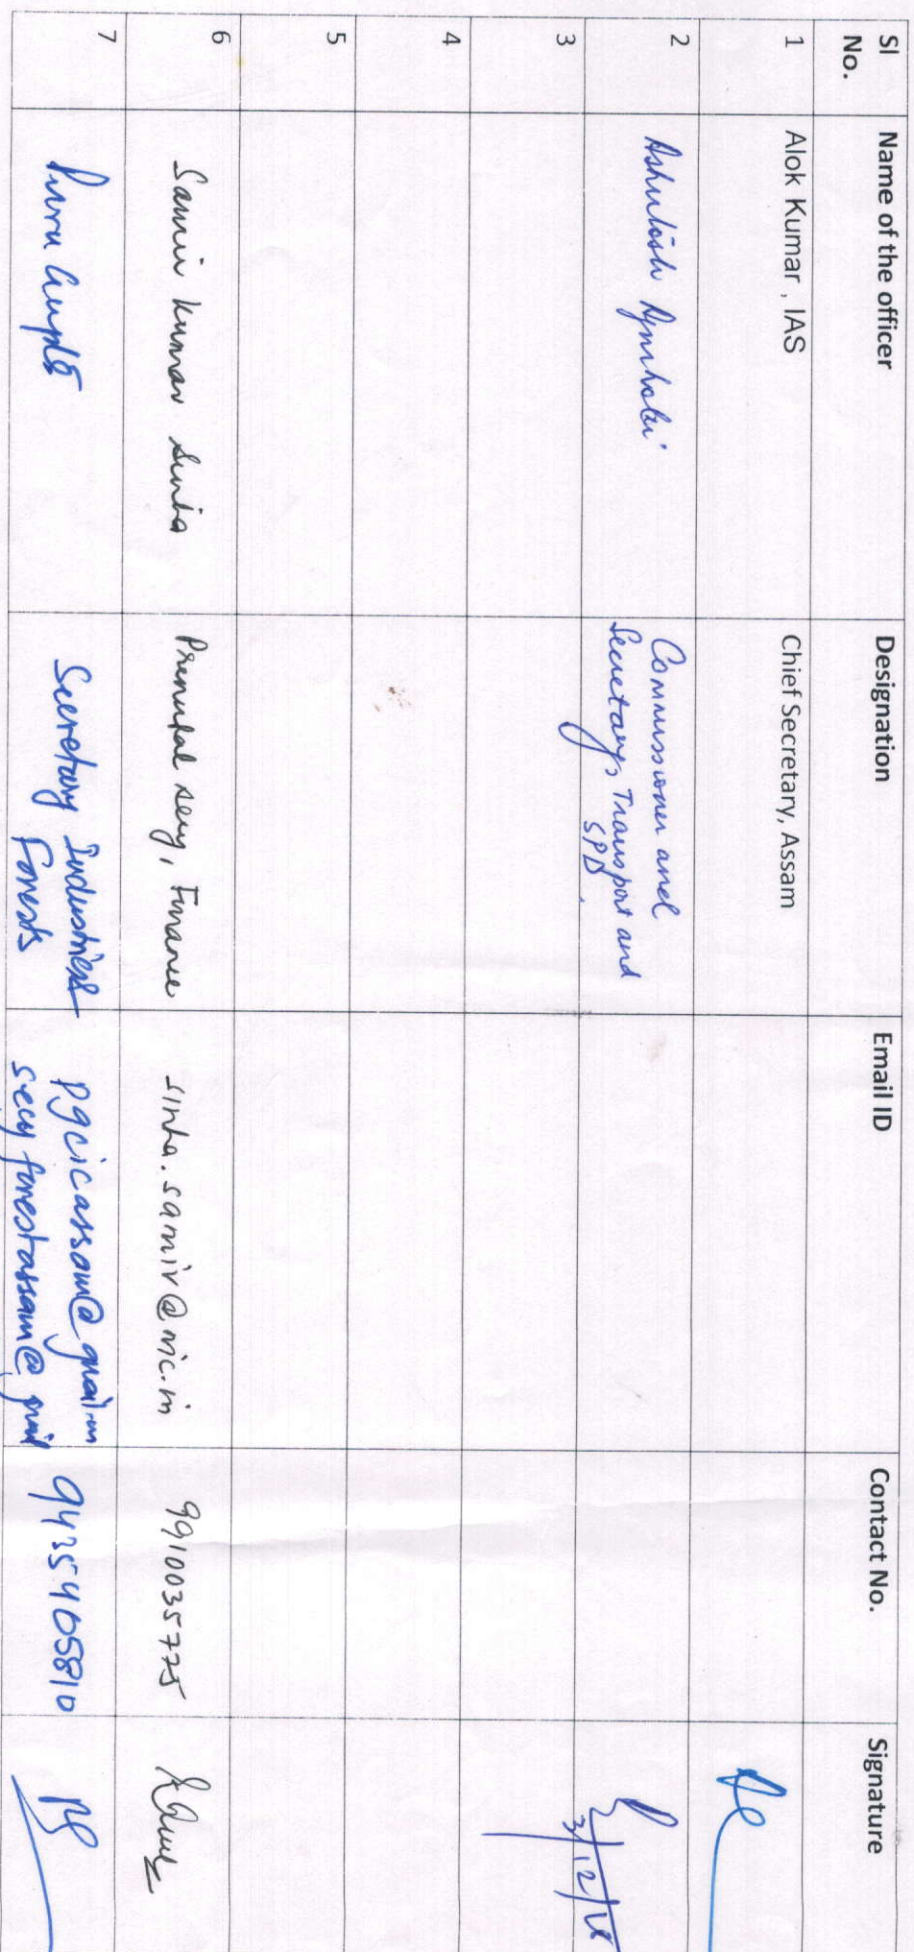 Sl No. Name of the officer Designation Email ID Contact No. Signature
1 Alok Kumar , IAS Chief Secretary, Assam
2 Ashutosh Agnihotri Commissioner and
Secretary, Transport and
SPD.
3/12/18
3
4
5
6 Samir Kumar Sinha Principal Secy, Finance sinha.samir@nic.in 9910035775
7 Puru Gupta Secretary Industries pgcicassam@gmail.com 9435405810
Forests secyforestassam@gmail